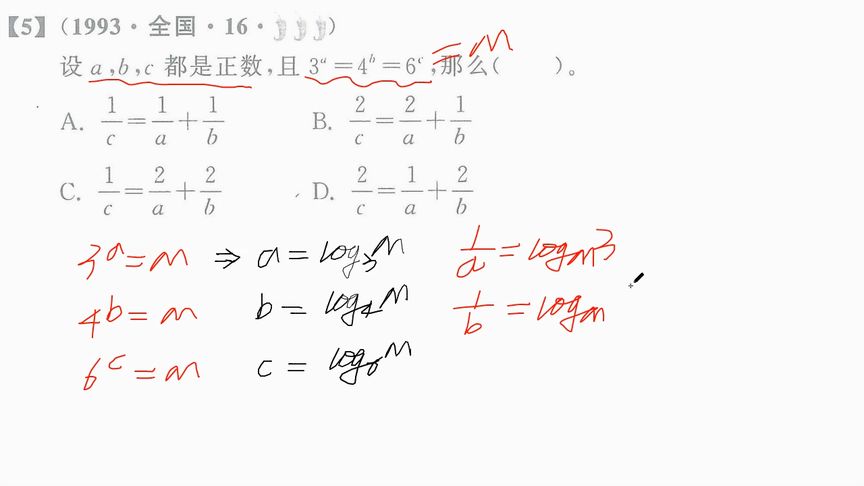 【5】(1993·全国·16·)
设 a,b,c 都是正数,且 3ᵃ=4ᵇ=6ᶜ,那么(  )。 =m
A. 1/c=1/a+1/b  B. 2/c=2/a+1/b
C. 1/c=2/a+2/b  D. 2/c=1/a+2/b
3ᵃ=m ⇒ a=log₃m  1/a=logₘ3
4ᵇ=m  b=log₄m  1/b=logₘ
6ᶜ=m  c=log₆m